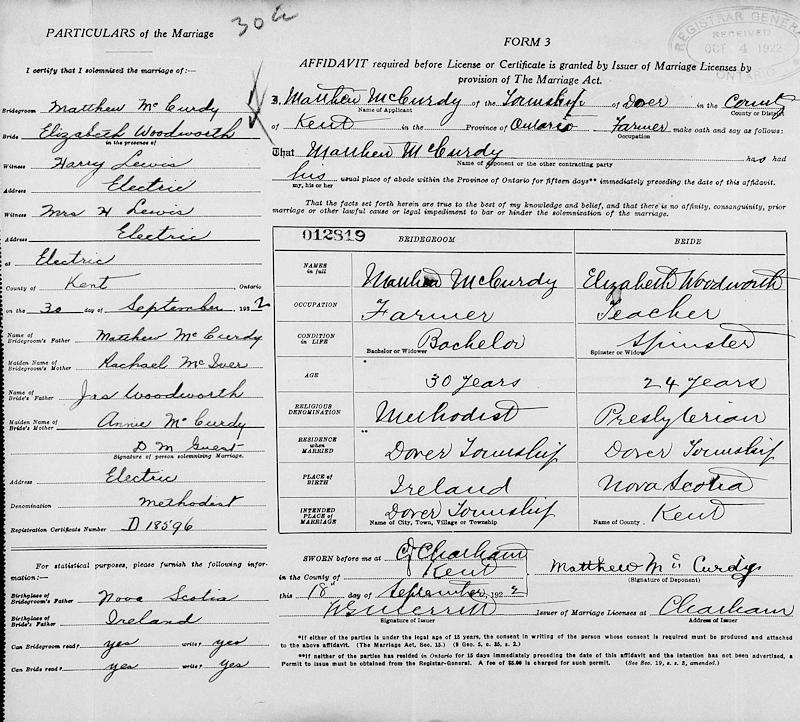 30a
PARTICULARS of the Marriage
I certify that I solemnized the marriage of:
Bridegroom Matthew McCurdy
Bride Elizabeth Woodworth
in the presence of
Witness Harry Lewis
Address Electric
Witness Mrs H Lewis
Address Electric
at Electric
County of Kent, Ontario
on the 30 day of September, 1922
Name of Bridegroom's Father Matthew McCurdy
Maiden Name of Bridegroom's Mother Rachael McIver
Name of Bride's Father Jas Woodworth
Maiden Name of Bride's Mother Annie McCurdy
D M Guest
Signature of person solemnizing Marriage.
Address Electric
Denomination Methodist
Registration Certificate Number D 18596
For statistical purposes, please furnish the following information:—
Birthplace of Bridegroom's Father Nova Scotia
Birthplace of Bride's Father Ireland
Can Bridegroom read? yes write? yes
Can Bride read? yes write? yes
REGISTRAR GENERAL
RECEIVED
OCT 4 1922
ONTARIO
FORM 3
AFFIDAVIT required before License or Certificate is granted by Issuer of Marriage Licenses by
provision of The Marriage Act.
I, Matthew McCurdy of the Township of Dover in the County
Name of Applicant County or District
of Kent in the Province of Ontario Farmer make oath and say as follows:
Occupation
That Matthew McCurdy has had
Name of deponent or the other contracting party
his usual place of abode within the Province of Ontario for fifteen days** immediately preceding the date of this affidavit.
my, his or her
That the facts set forth herein are true to the best of my knowledge and belief, and that there is no affinity, consanguinity, prior
marriage or other lawful cause or legal impediment to bar or hinder the solemnization of the marriage.
012819 BRIDEGROOM BRIDE
NAMES in full Matthew McCurdy Elizabeth Woodworth
OCCUPATION Farmer Teacher
CONDITION in LIFE Bachelor Spinster
Bachelor or Widower Spinster or Widow
AGE 30 Years 24 Years
RELIGIOUS DENOMINATION Methodist Presbyterian
RESIDENCE when MARRIED ** Dover Township Dover Township
PLACE OF BIRTH Ireland Nova Scotia
INTENDED PLACE OF MARRIAGE Dover Township Kent
Name of City, Town, Village or Township Name of County
SWORN before me at Cy Chatham
in the County of Kent Matthew McCurdy
(Signature of Deponent)
this 18 day of September, 1922
Issuer of Marriage Licenses at Chatham
Signature of Issuer Address of Issuer
*If either of the parties is under the legal age of 18 years, the consent in writing of the person whose consent is required must be produced and attached
to the above affidavit. (The Marriage Act, Sec. 15.) (9 Geo. 5, c. 35, s. 2.)
**If neither of the parties has resided in Ontario for 15 days immediately preceding the date of this affidavit and the intention has not been advertised, a
Permit to issue must be obtained from the Registrar-General. A fee of $5.00 is charged for such permit. (See Sec. 19, s. s. 3, amended.)